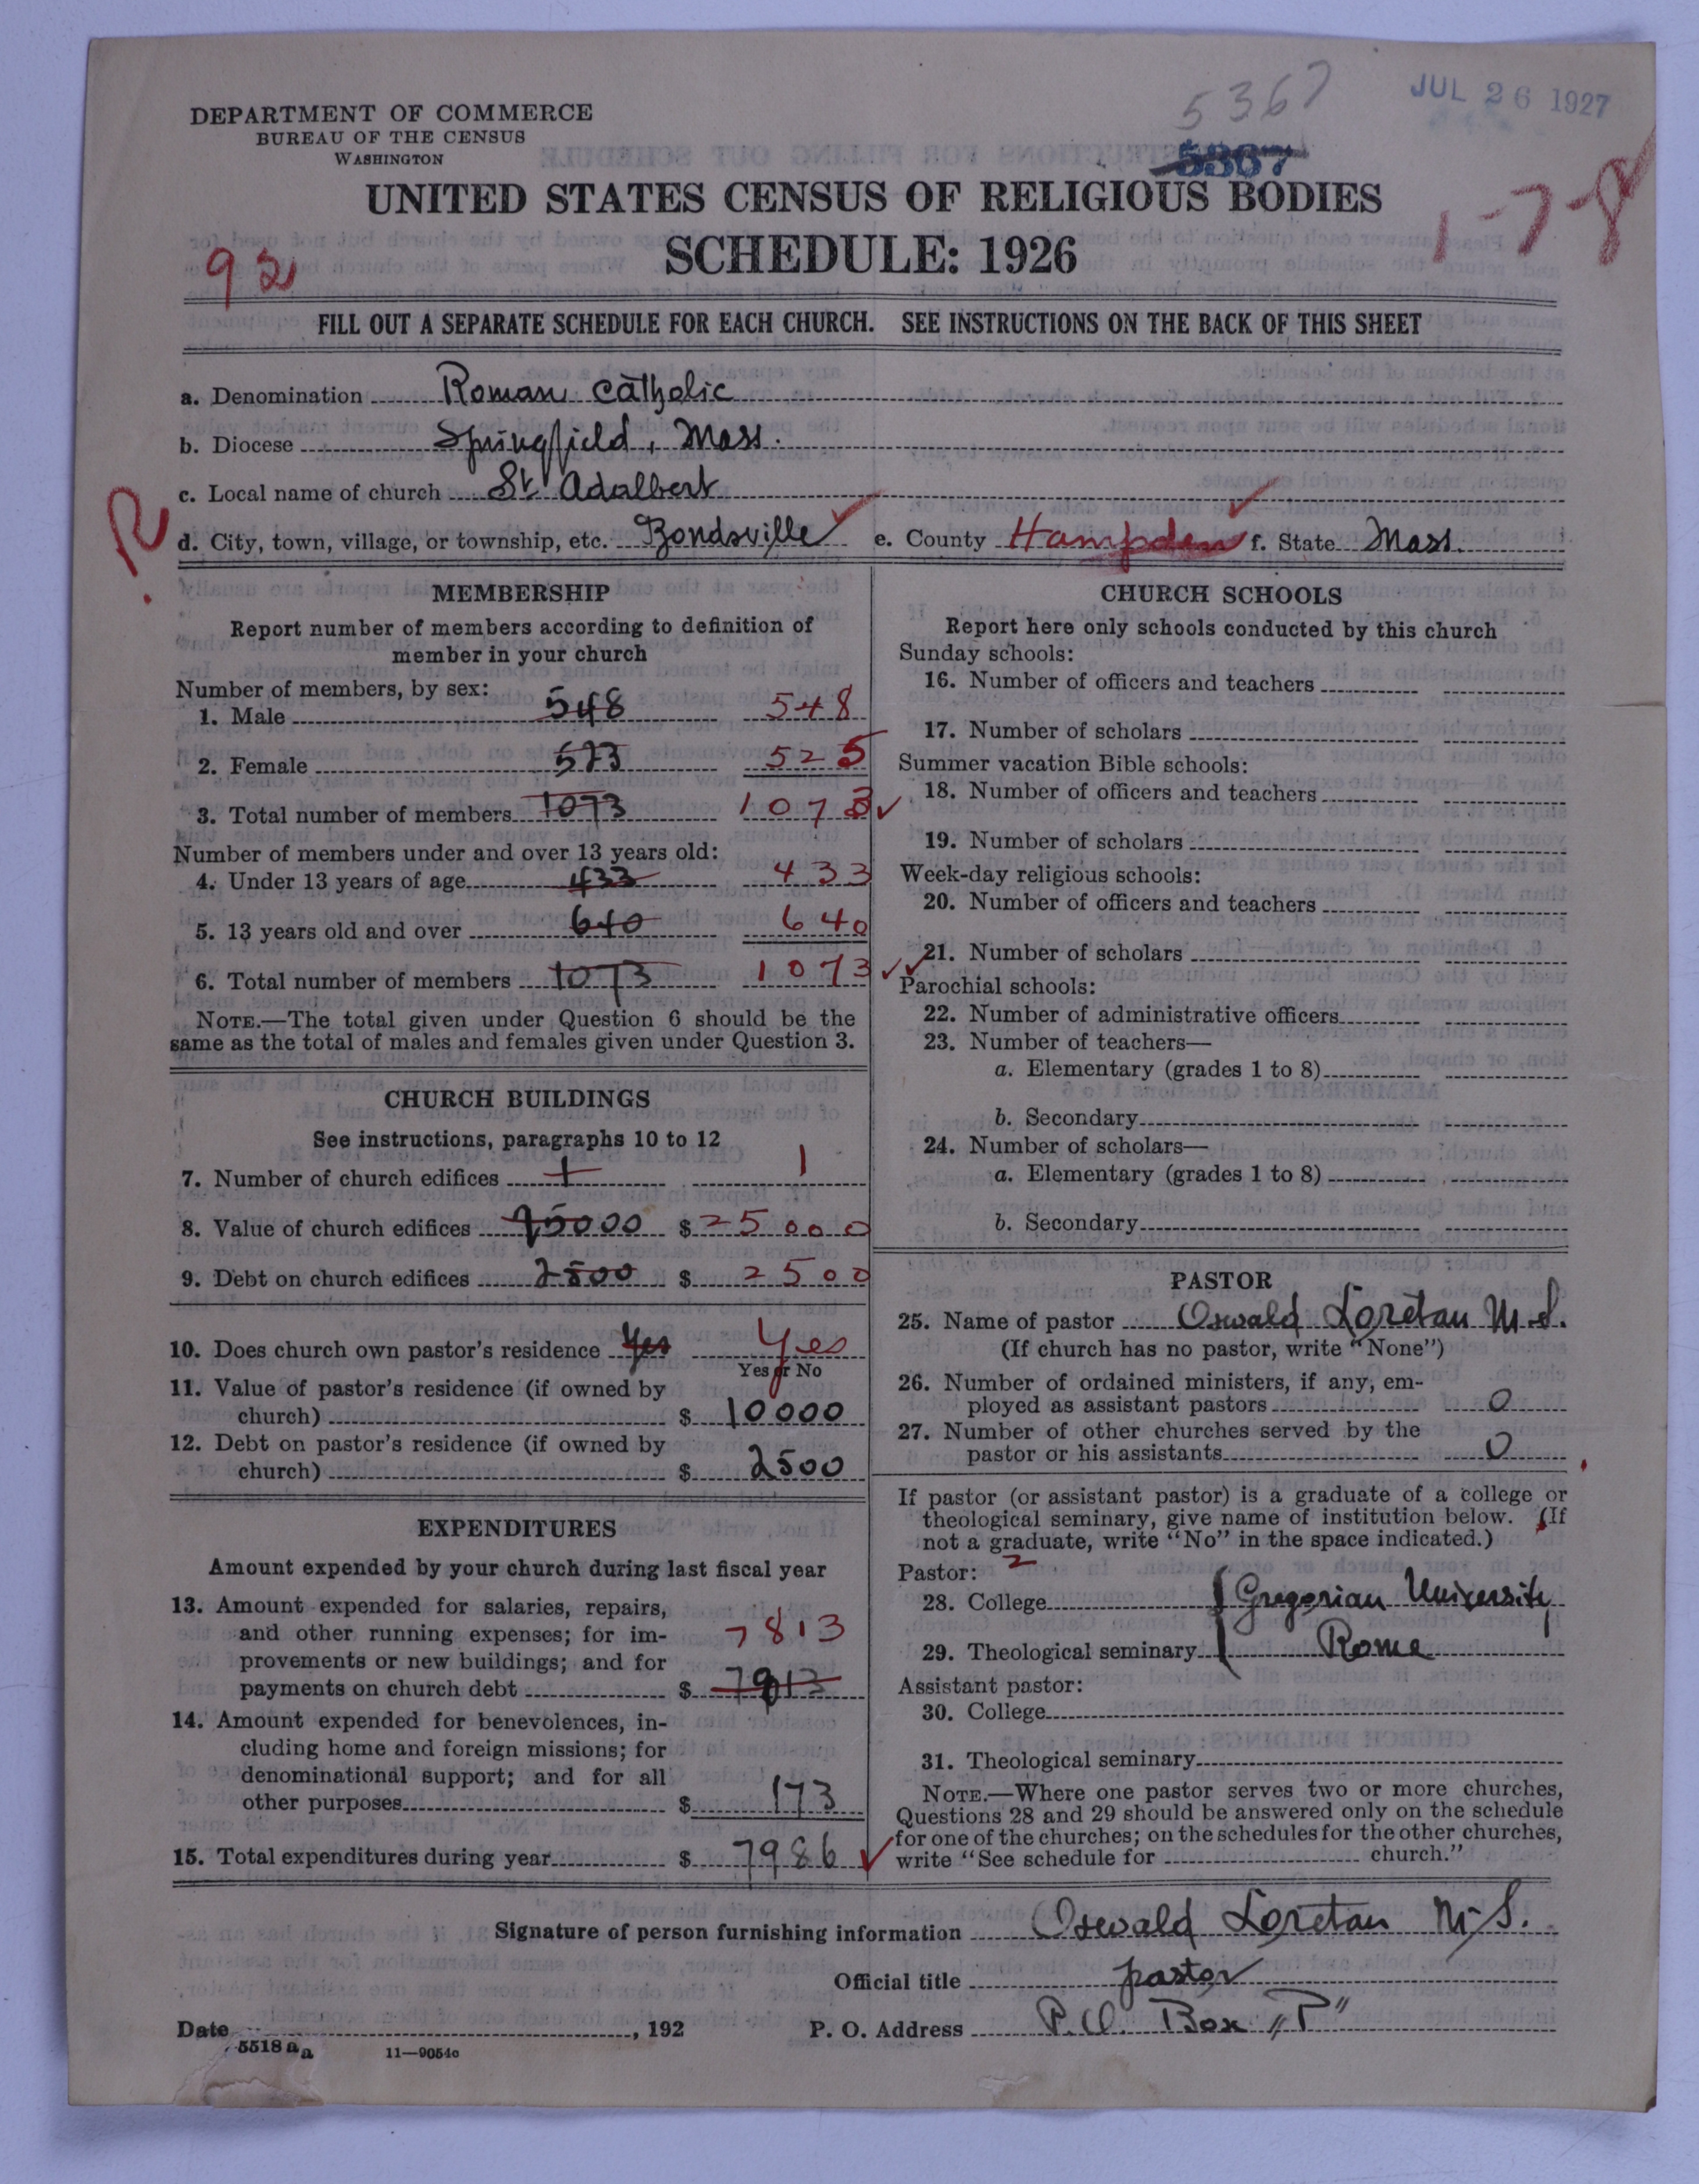 5367
JUL 26 1927
DEPARTMENT OF COMMERCE
BUREAU OF THE CENSUS
WASHINGTON
5367
UNITED STATES CENSUS OF RELIGIOUS BODIES
SCHEDULE: 1926
1-7-8
FILL OUT A SEPARATE SCHEDULE FOR EACH CHURCH. SEE INSTRUCTIONS ON THE BACK OF THIS SHEET
a. Denomination Roman Catholic
b. Diocese Springfield, Mass.
c. Local name of church St Adalbert
R
d. City, town, village, or township, etc. Bondsville e. County Hampden f. State Mass.
MEMBERSHIP
Report number of members according to definition of
member in your church
Number of members, by sex:
1. Male 548 548
2. Female 573 525
3. Total number of members 1073 1073
Number of members under and over 13 years old:
4. Under 13 years of age 433 433
5. 13 years old and over 640 640
6. Total number of members 1073 1073
NOTE.—The total given under Question 6 should be the
same as the total of males and females given under Question 3.
CHURCH BUILDINGS
See instructions, paragraphs 10 to 12
7. Number of church edifices 1 1
8. Value of church edifices 25000 $ 25000
9. Debt on church edifices 2500 $ 2500
10. Does church own pastor's residence Yes Yes
Yes or No
11. Value of pastor's residence (if owned by
church) $ 10000
12. Debt on pastor's residence (if owned by
church) $ 2500
EXPENDITURES
Amount expended by your church during last fiscal year
13. Amount expended for salaries, repairs,
and other running expenses; for im- 7813
provements or new buildings; and for
payments on church debt $ 7813
14. Amount expended for benevolences, in-
cluding home and foreign missions; for
denominational support; and for all
other purposes $ 173
15. Total expenditures during year $ 7986
CHURCH SCHOOLS
Report here only schools conducted by this church
Sunday schools:
16. Number of officers and teachers
17. Number of scholars
Summer vacation Bible schools:
18. Number of officers and teachers
19. Number of scholars
Week-day religious schools:
20. Number of officers and teachers
21. Number of scholars
Parochial schools:
22. Number of administrative officers
23. Number of teachers—
a. Elementary (grades 1 to 8)
b. Secondary
24. Number of scholars—
a. Elementary (grades 1 to 8)
b. Secondary
PASTOR
25. Name of pastor Oswald Loretan M.S.
(If church has no pastor, write "None")
26. Number of ordained ministers, if any, em-
ployed as assistant pastors 0
27. Number of other churches served by the
pastor or his assistants 0
If pastor (or assistant pastor) is a graduate of a college or
theological seminary, give name of institution below. (If
not a graduate, write "No" in the space indicated.)
Pastor: 2
28. College Gregorian University
29. Theological seminary Rome
Assistant pastor:
30. College
31. Theological seminary
NOTE.—Where one pastor serves two or more churches,
Questions 28 and 29 should be answered only on the schedule
for one of the churches; on the schedules for the other churches,
write "See schedule for church."
Signature of person furnishing information Oswald Loretan M.S.
Official title pastor
Date , 192 P. O. Address P.O. Box „P"
5518 a a 11—9054c